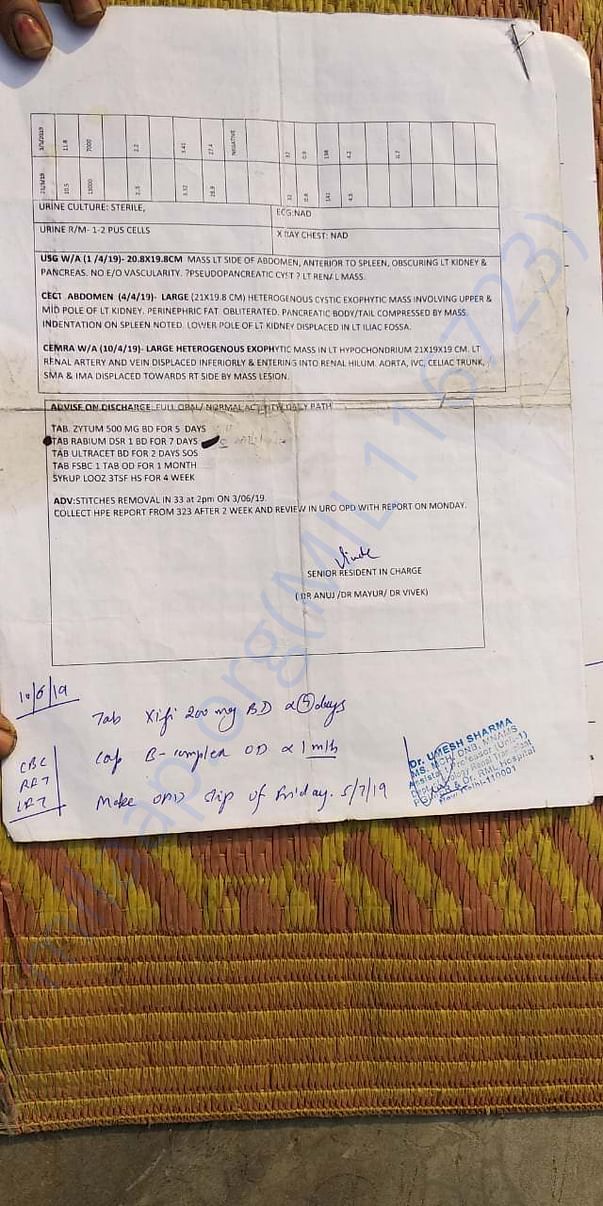 3/5/2019 11.8 7000 2.2 3.41 27.4 NEGATIVE 32 0.9 138 4.2 0.7
10.5 2.3 3.32 28.9 32 0.8 141 4.5
URINE CULTURE: STERILE,
ECG:NAD
URINE R/M- 1-2 PUS CELLS
X RAY CHEST: NAD
USG W/A (1 /4/19)- 20.8X19.8CM MASS LT SIDE OF ABDOMEN, ANTERIOR TO SPLEEN, OBSCURING LT KIDNEY &
PANCREAS. NO E/O VASCULARITY. ?PSEUDOPANCREATIC CYST ? LT RENAL MASS.
CECT ABDOMEN (4/4/19)- LARGE (21X19.8 CM) HETEROGENOUS CYSTIC EXOPHYTIC MASS INVOLVING UPPER &
MID POLE OF LT KIDNEY. PERINEPHRIC FAT OBLITERATED. PANCREATIC BODY/TAIL COMPRESSED BY MASS.
INDENTATION ON SPLEEN NOTED. LOWER POLE OF LT KIDNEY DISPLACED IN LT ILIAC FOSSA.
CEMRA W/A (10/4/19)- LARGE HETEROGENOUS EXOPHYTIC MASS IN LT HYPOCHONDRIUM 21X19X19 CM. LT
RENAL ARTERY AND VEIN DISPLACED INFERIORLY & ENTERING INTO RENAL HILUM. AORTA, IVC, CELIAC TRUNK,
SMA & IMA DISPLACED TOWARDS RT SIDE BY MASS LESION.
ADVISE ON DISCHARGE: FULL ORAL/ NORMAL ACTIVITY/DAILY BATH
TAB. ZYTUM 500 MG BD FOR 5 DAYS
TAB RABIUM DSR 1 BD FOR 7 DAYS
TAB ULTRACET BD FOR 2 DAYS SOS
TAB FSBC 1 TAB OD FOR 1 MONTH
SYRUP LOOZ 3TSF HS FOR 4 WEEK
ADV:STITCHES REMOVAL IN 33 at 2pm ON 3/06/19.
COLLECT HPE REPORT FROM 323 AFTER 2 WEEK AND REVIEW IN URO OPD WITH REPORT ON MONDAY.
SENIOR RESIDENT IN CHARGE
(DR ANUJ /DR MAYUR/ DR VIVEK)
10/6/19
Tab Xifi 200 mg BD x 5 days
CBC
Cap B-complex OD x 1 mth
RFT
LFT
Make OPD slip of Friday. 5/7/19
Dr. UMESH SHARMA
MS, MCH, DNB, MNAMS
Assistant Professor (Unit-1)
Deptt. of Urology & Renal Transplant
PGIMER & Dr. RML Hospital
New Delhi-110001
milaap.org(MIL116723)